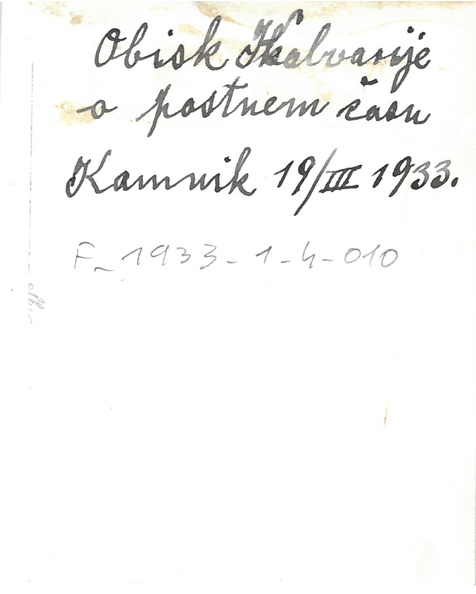 Obisk Kalvarije
o postnem času
Kamnik 19/III 1933.
F_1933-1-4-010